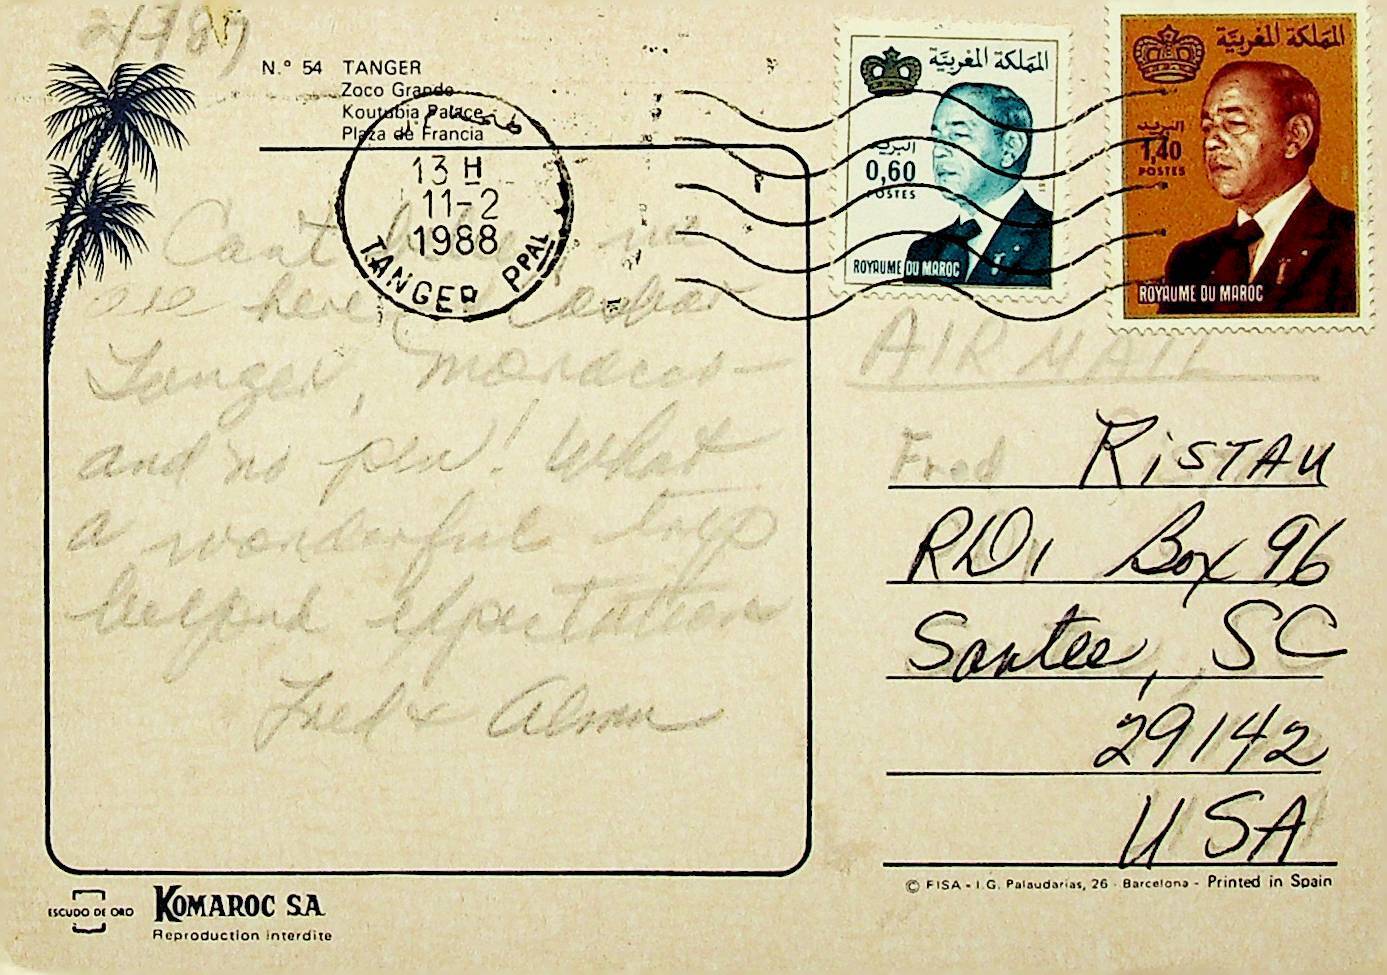 2/7/87
N.º 54 TANGER
Zoco Grande
Koutubia Palace
Plaza de Francia
طنجة
13 H
11-2
1988
TANGER PPAL
المملكة المغربية
البريد
0,60
POSTES
ROYAUME DU MAROC
المملكة المغربية
البريد
1,40
POSTES
ROYAUME DU MAROC
Cant we
are here Casbar
Tanger, Morocco -
and no pen! What
a wonderful trip
beyond expectation
Fred & Alma
AIR MAIL
Fred RISTAU
RD1 Box 96
Santee, SC
29142
USA
© FISA - I.G. Palaudarias, 26 - Barcelona - Printed in Spain
ESCUDO DE ORO
KOMAROC S.A.
Reproduction interdite